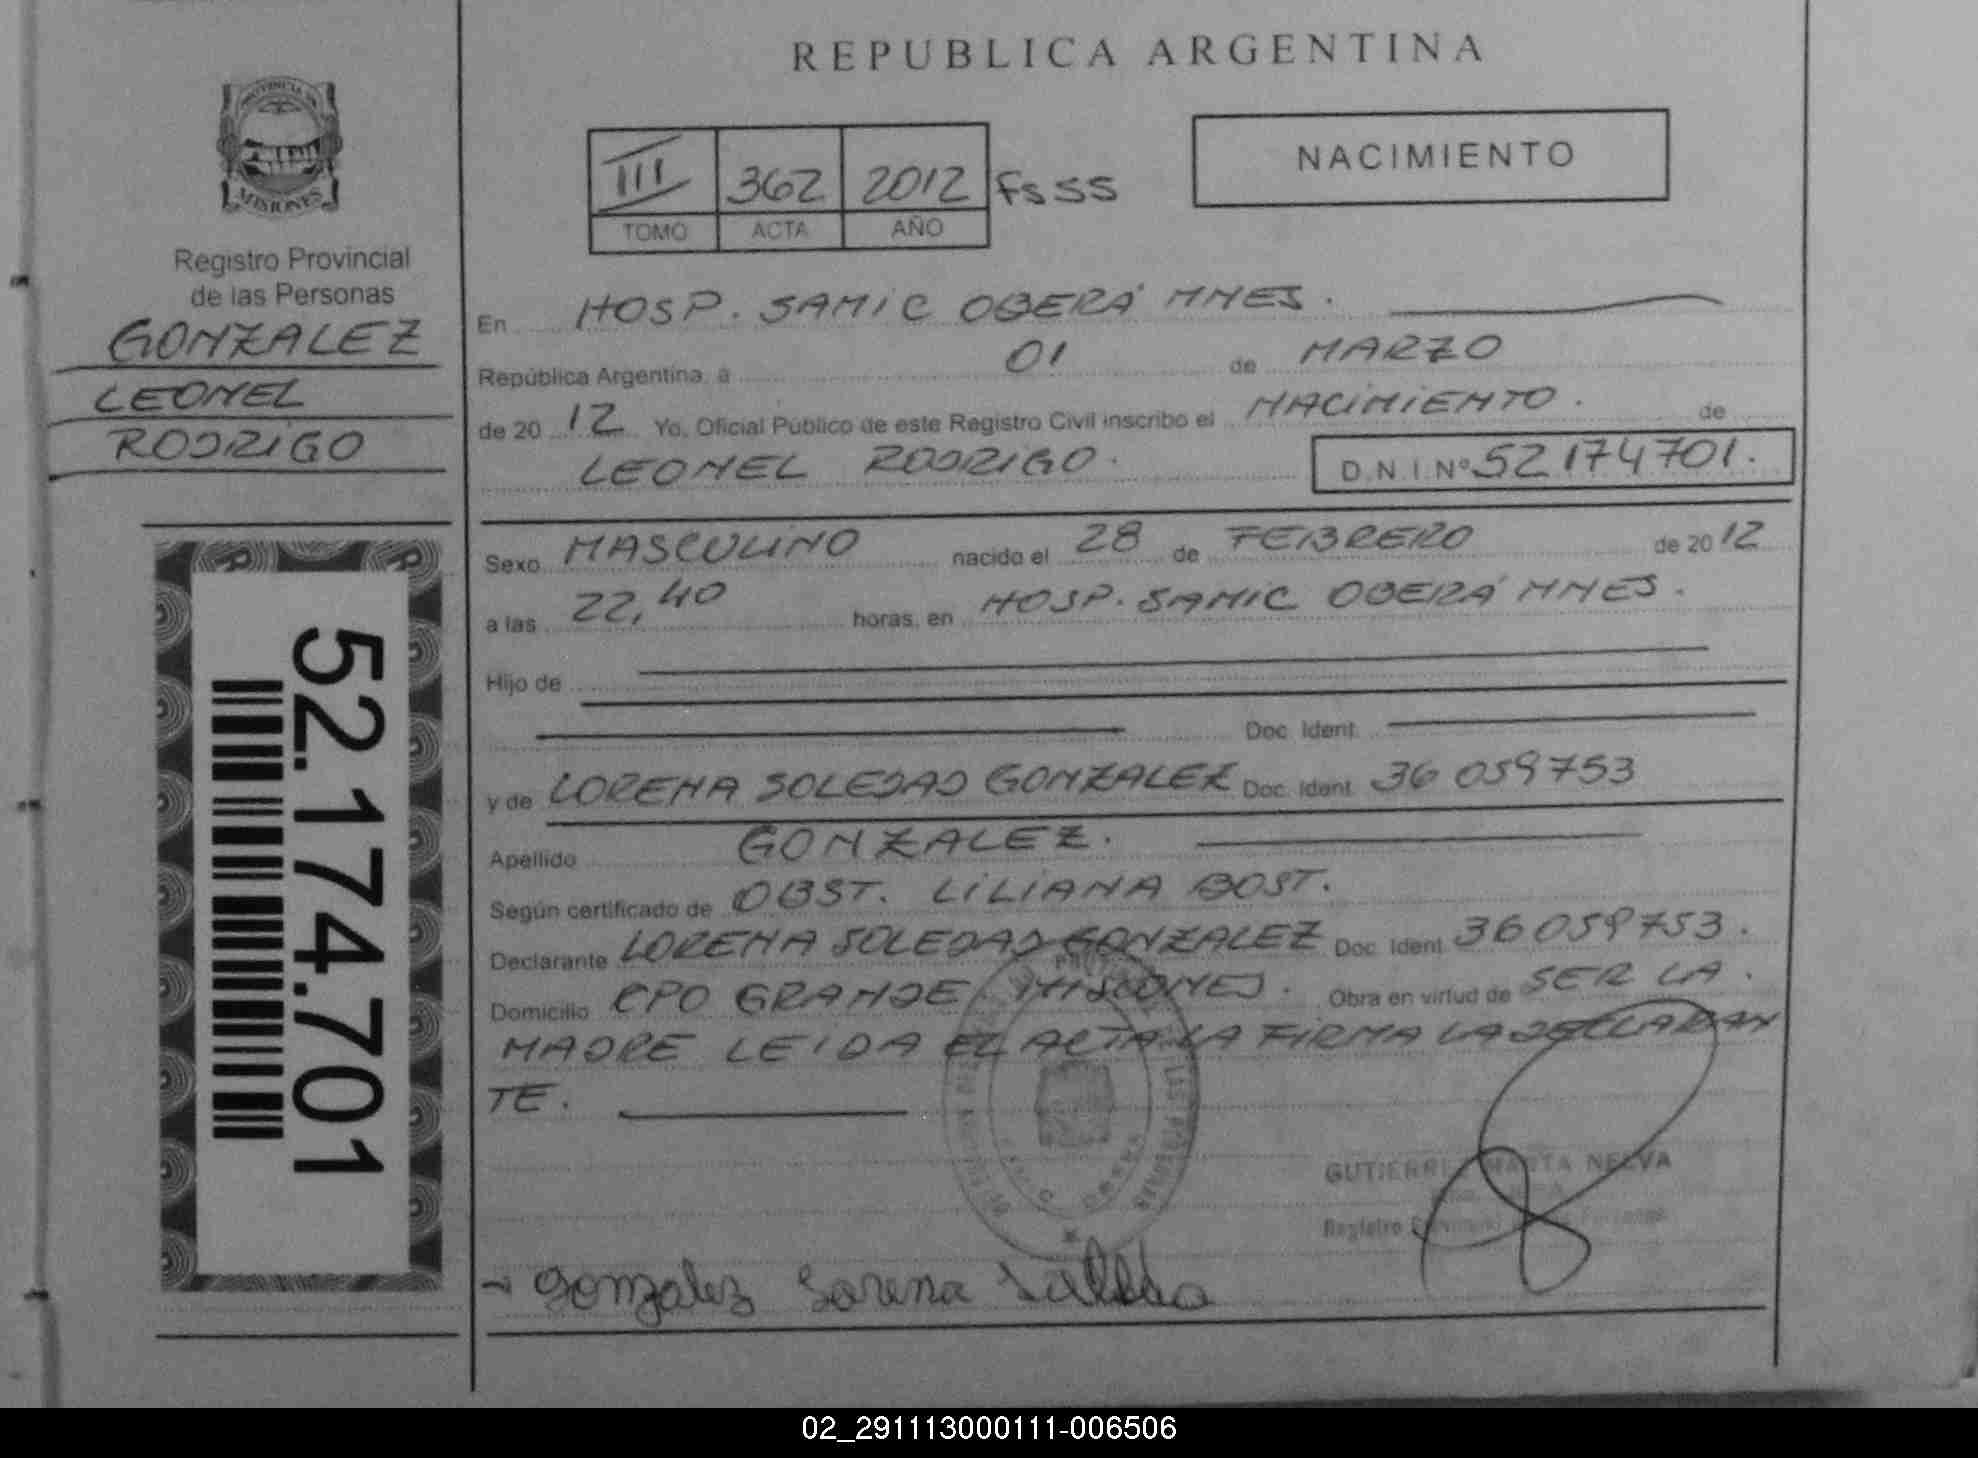 REPUBLICA ARGENTINA
PROVINCIA DE
MISIONES
Registro Provincial
de las Personas
GONZALEZ
LEONEL
RODRIGO
52.174.701
III 362 2012 Fs 55
TOMO ACTA AÑO
NACIMIENTO
En HOSP. SAMIC OBERÁ MNES.
República Argentina, a 01 de MARZO
de 20 12 Yo, Oficial Público de este Registro Civil inscribo el NACIMIENTO. de
LEONEL RODRIGO. D.N.I.Nº 52174701.
Sexo MASCULINO nacido el 28 de FEBRERO de 20 12
a las 22,40 horas, en HOSP. SAMIC OBERÁ MNES.
Hijo de
Doc. Ident.
y de LORENA SOLEDAD GONZALEZ Doc. Ident. 36 059753
Apellido GONZALEZ.
Según certificado de OBST. LILIANA BOST.
Declarante LORENA SOLEDAD GONZALEZ Doc. Ident. 36059753.
Domicilio CPO GRANDE MISIONES. Obra en virtud de SER LA.
MADRE LEIDA EL ACTA LA FIRMA LA DECLARAN
TE.
GUTIERREZ MARTA NELVA
Registro Provincial
Gonzalez Lorena
02_291113000111-006506